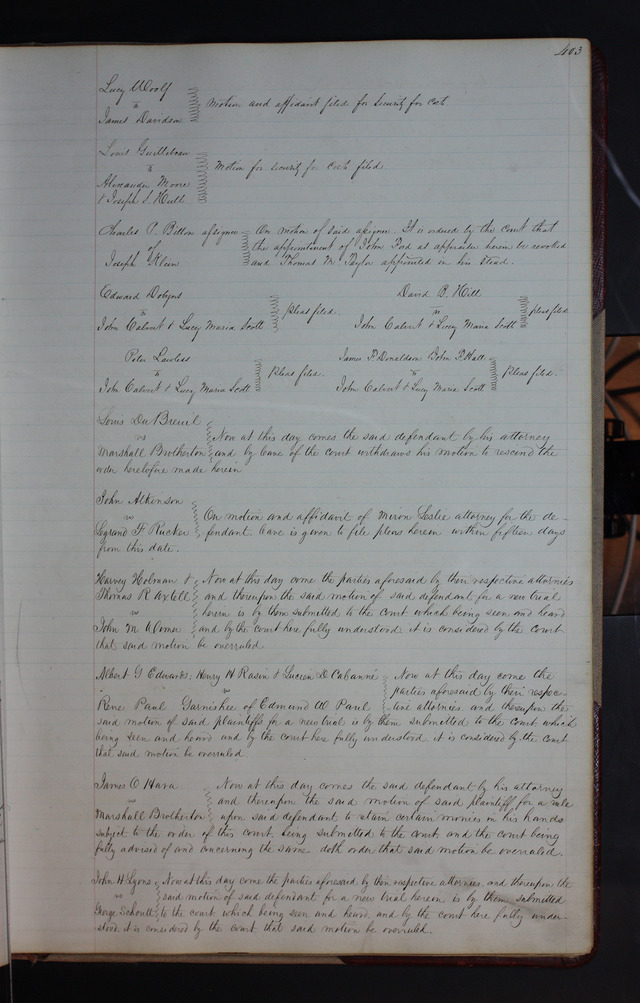 403
Lucy Woolf
vs
James Davidson
Motion and affidavit filed for Security for Cost
Louis
vs
Alexander Moore
& Joseph S. Hull
Motion for security for costs filed
Charles P. Billon assignee
of
Joseph Klein
On motion of said assignee. It is ordered by the Court that
the appointment of John Ford as appraiser herein be revoked
and Thomas M. Taylor appointed in his stead.
Edward Dobyns
vs
John Calvert & Lucy Maria Scott
Pleas filed.
David B. Hill
vs
John Calvert & Lucy Maria Scott
pleas filed
Peter Lawless
vs
John Calvert & Lucy Maria Scott
Pleas filed.
James P. Donaldson John P. Hall
vs
John Calvert & Lucy Maria Scott
Pleas filed.
Louis DuBreuil
vs
Marshall Brotherton
Now at this day comes the said defendant by his attorney
and by leave of the court withdraws his motion to rescind the
order heretofore made herein
John Atkinson
vs
Legrand F. Rucker
On motion and affidavit of Miron Leslie attorney for the de-
fendant. leave is given to file pleas herein within fifteen days
from this date.
Harvey Holman &
Thomas R Axtell
vs
John M Wimer
Now at this day come the parties aforesaid by their respective attornies
and thereupon the said motion of said defendant for a new trial
herein is by them submitted to the Court which being seen and heard
and by the court here fully understood it is considered by the Court
that said motion be overruled
Albert G Edwards, Henry H Rasin & Lucien D Cabanné
vs
Rene Paul Garnishee of Edmund W Paul
Now at this day come the
parties aforesaid by their respec-
tive attornies and thereupon the
said motion of said plaintiffs for a new trial is by them submitted to the Court which
being seen and heard and by the court here fully understood it is considered by the Court
that said motion be overruled
James O Hara
vs
Marshall Brotherton
Now at this day comes the said defendant by his attorney
and thereupon the said motion of said plaintiff for a rule
upon said defendant to retain certain monies in his hands
subject to the order of this court being submitted to the court and the court being
fully advised of and concerning the same doth order that said motion be overruled.
John H Lyons
vs
George Schoult
Now at this day come the parties aforesaid by their respective attornies and thereupon the
said motion of said defendant for a new trial herein is by them submitted
to the court which being seen and heard and by the court here fully under-
stood it is considered by the court that said motion be overruled.